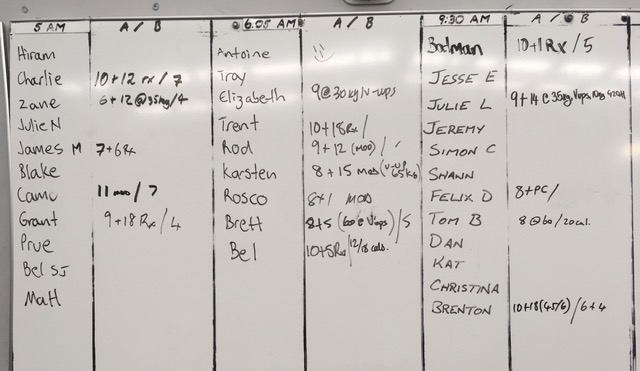 5 AM A / B
Hiram
Charlie 10+12 rx / 7
Zane 6+12@35kg/4
Julie N
James M 7+6Rx
Blake
Camo 11 / 7
Grant 9+18 Rx / 4
Prue
Bel SJ
Matt
6.05 AM A / B
Antoine
Troy
Elizabeth 9@30kg/v-ups
Trent 10+18Rx /
Rod 9+12 (MOD) /
Karsten 8+15 Mod (V-UP 65kg)
Rosco 8x1 MOD
Brett 8+5 (60@ V'ups) / 5
Bel 10+5Rx / 12/18 cals.
9:30 AM A / B
Bodman 10+1Rx / 5
JESSE E
JULIE L 9+14 @ 35kg, Vups, 10kg
JEREMY
SIMON C
SHANN
FELIX D 8+PC/
TOM B 8@60/20cal.
DAN
KAT
CHRISTINA
BRENTON 10+18(45/6)/6+4